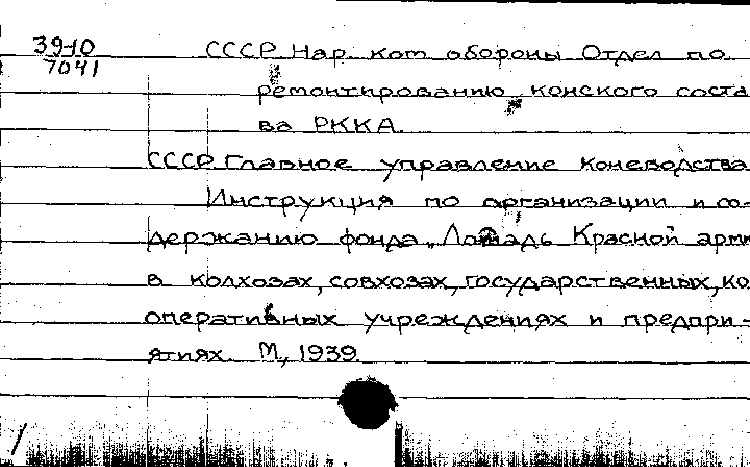 39-10
7041
СССР Нар. ком обороны Отдел по
ремонтированию конского соста
ва РККА.
СССР. Главное управление коневодства
Инструкция по организации и со-
держанию фонда „Лошадь Красной арми
в колхозах, совхозах, государственных, ко
оперативных учреждениях и предпри-
ятиях. М, 1939.